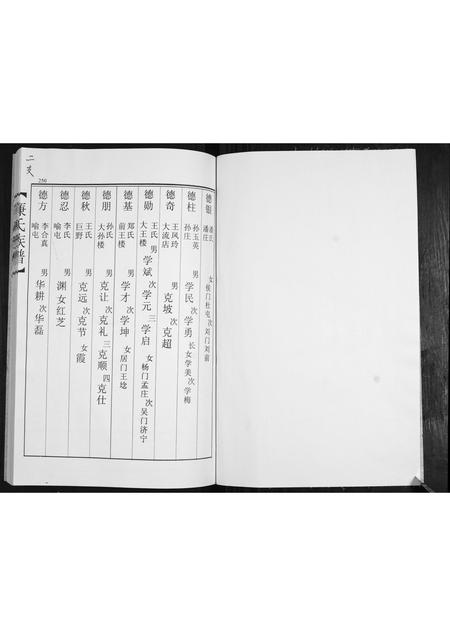 二支
250
氏族譜
德銀 潘氏 潘庄 女侯门杜屯 次刘门刘前
德柱 孙玉英 孙庄 男 学民 次 学勇 长女学美 次学梅
德奇 王凤玲 大流店 男 克坡 次 克超
德勋 王氏 大王楼 男 学斌 次 学元 三 学启 女杨门孟庄 次吴门济宁
德基 郑氏 前王楼 男 学才 次 学坤 女居门王埝
德朋 孙氏 大孙楼 男 克让 次 克礼 三 克顺 四 克仕
德秋 王氏 巨野 男 克远 次 克节 女 霞
德忍 李氏 喻屯 男 渊 女 红芝
德方 李合真 喻屯 男 华耕 次 华磊